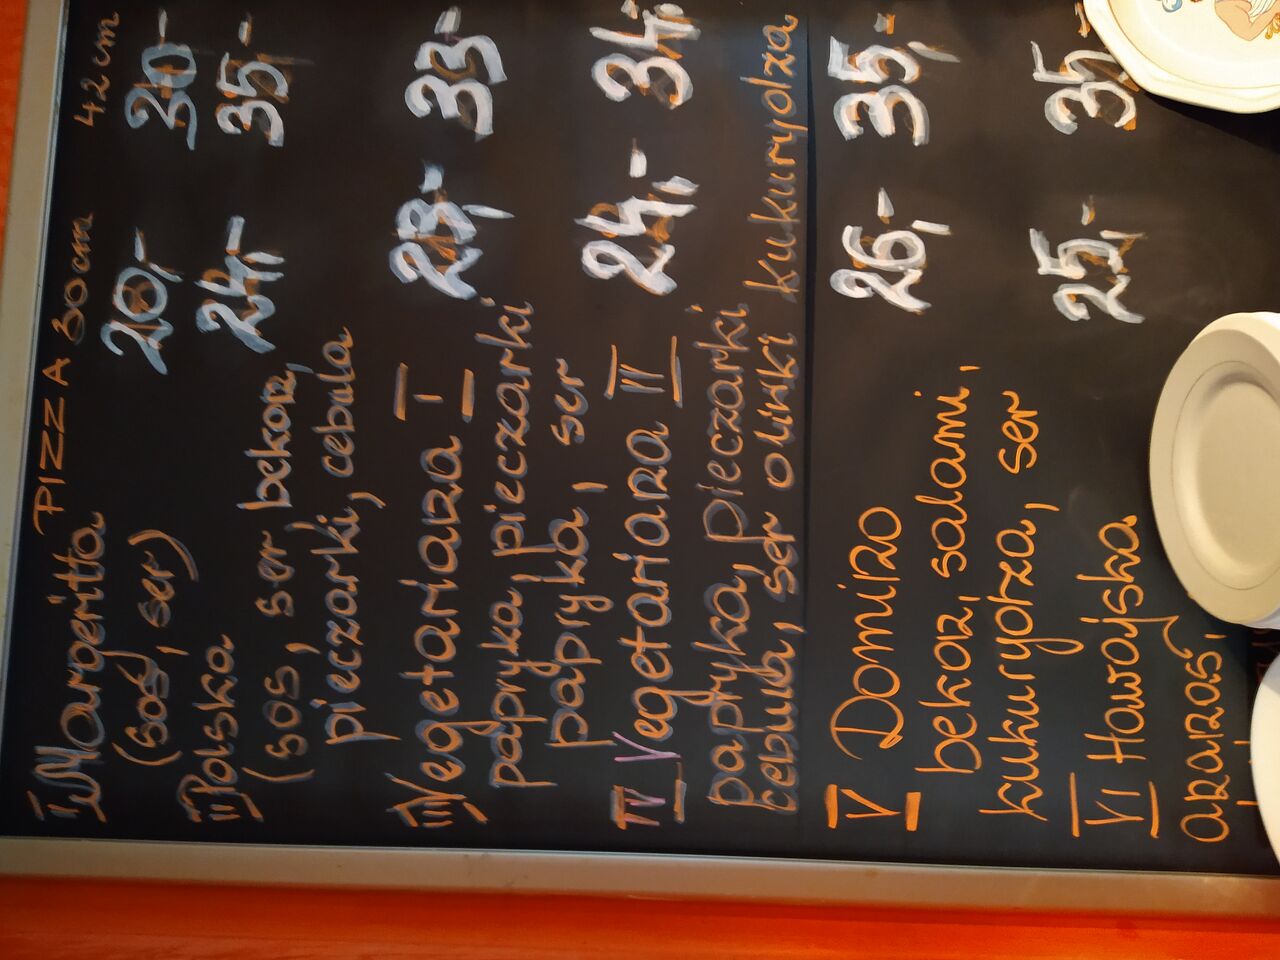 PIZZA 30cm 42cm
I Margeritta 20,- 30,-
(sos, ser)
II Polska 24,- 35,-
(sos, ser, bekon,
pieczarki, cebula
III Vegetariana I 23,- 33,-
papryka, pieczarki
papryka, ser
IV Vegetariana II 24,- 34,-
papryka, pieczarki
cebula, ser oliwki kukurydza
V Domino 26,- 35,-
bekon, salami,
kukurydza, ser
VI Hawajska 25,- 35,-
ananas,